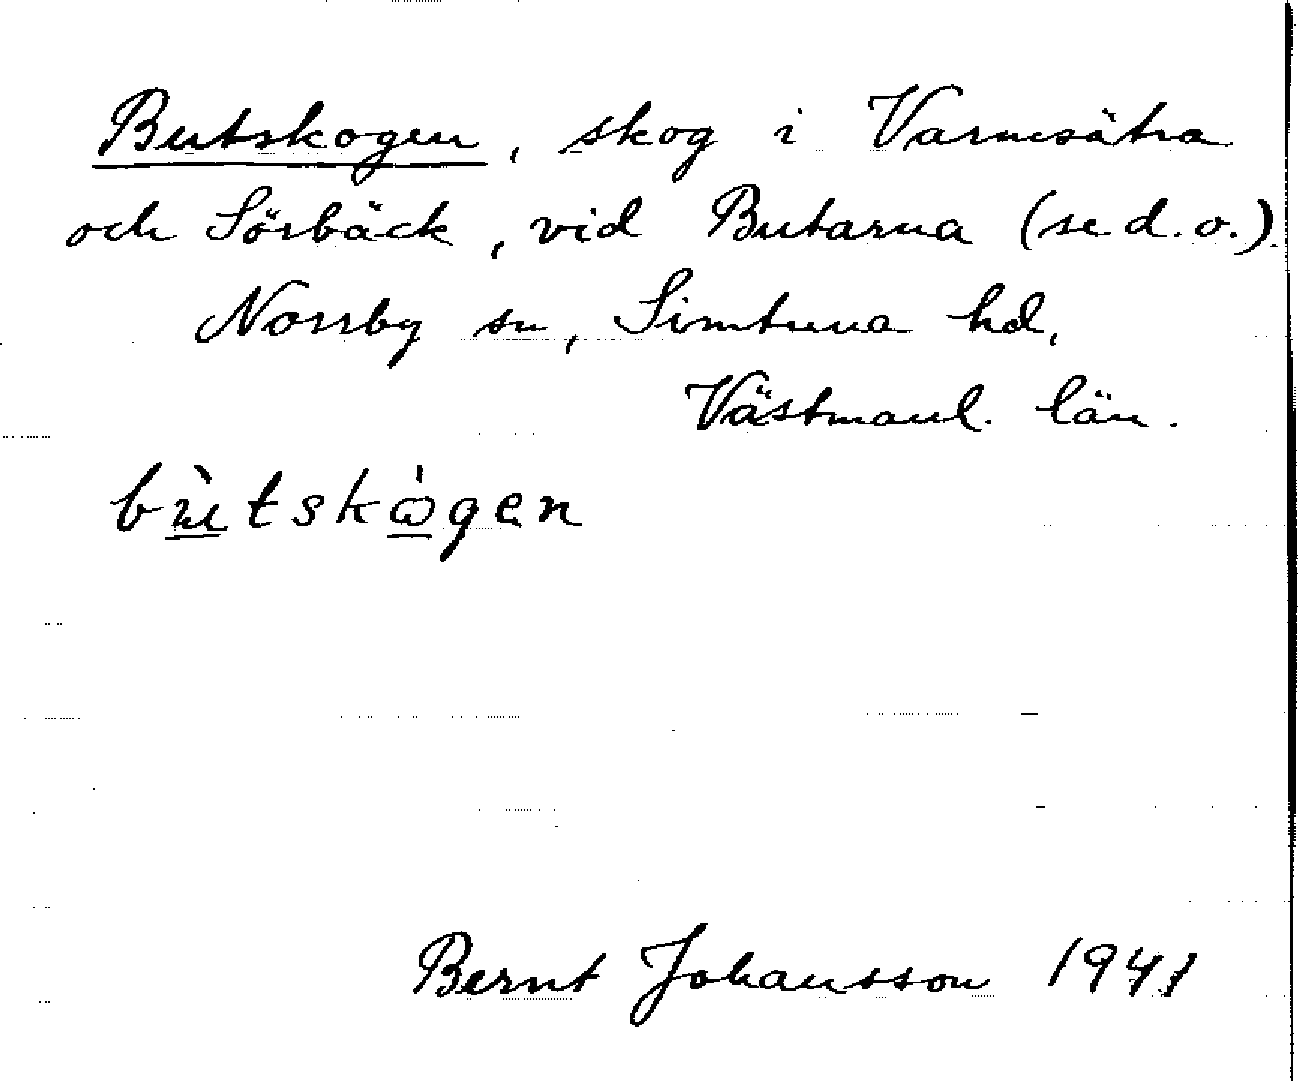 Butskogen, skog i Varmsätra
och Sörbäck, vid Butarna (se d. o.).
Norrby sn, Simtuna hd,
Västmanl. län.
bù̲tskω̲̇gen
Bernt Johansson 1941